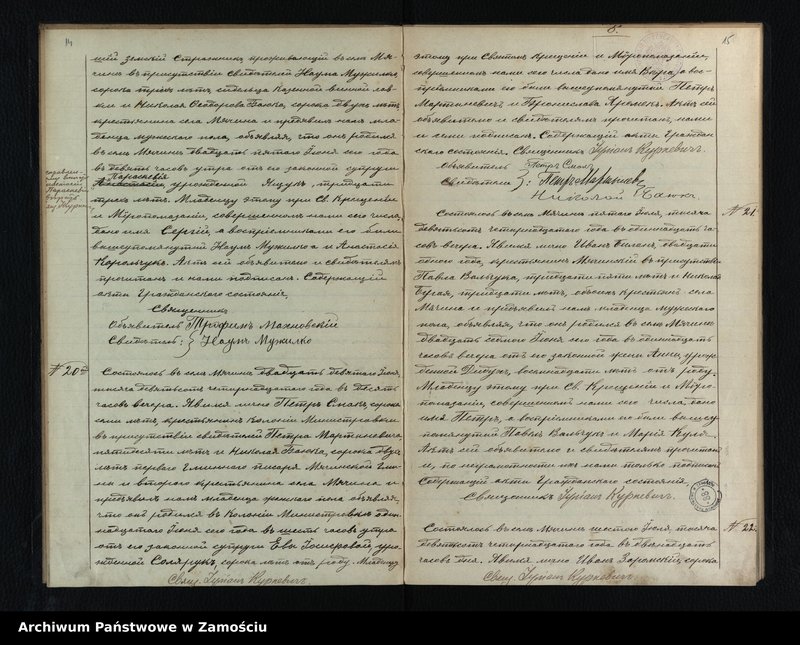 14
ний земский Стражник проживающий въ селѣ Мя-
чинъ въ присутствіи свидѣтелей Наума Мужилко,
сорока трехъ лѣтъ сидѣльца казенной винной лав-
ки и Николая Баюка, сорока двухъ лѣтъ
крестьянина села Мячина и предъявилъ намъ мла-
денца мужескаго пола, объявляя, что онъ родился
въ селѣ Мячинѣ двадцать пятаго Іюня сего года
въ девять часовъ утра отъ его законной супруги
Параскевіи
урожденной Яцукъ, тридцати
трехъ лѣтъ. Младенцу этому при Св. Крещеніи
и Мѵропомазаніи, совершенномъ нами сего числа,
дано имя Сергій, а воспріемниками его были
вышеупомянутый Наумъ Мужилко и Анастасія
Корольчукъ. Актъ сей объявителю и свидѣтелямъ
прочитанъ и нами подписанъ. Содержащій
акты Гражданскаго состоянія,
Священникъ
Объявитель Трофимъ Махновскій
Свидѣтель: Наумъ Мужилко
№ 20
Состоялось въ селѣ Мячинѣ двадцать девятаго Іюня,
тысяча девятьсотъ четырнадцатаго года въ десять
часовъ вечера. Явился лично Петръ Смакъ, сорока
лѣтъ, крестьянинъ колоніи Министровки
въ присутствіи свидѣтелей Петра Мартыневича,
лѣтъ и Николая Баюка, сорока двухъ
лѣтъ перваго Гминнаго писаря Мячинской Гми-
ны и второго крестьянина села Мячина и
предъявилъ намъ младенца женскаго пола объявляя,
что онъ родился въ Колоніи Министровкѣ один-
надцатаго Іюня сего года въ шесть часовъ утра
отъ его законной супруги Евы уро-
жденной Солярукъ, сорока лѣтъ отъ роду. Младенцу
Свящ. Іуліанъ Куркевичъ.
8.
15
этому при Святомъ Крещеніи и Мѵропомазаніи,
совершенномъ нами сего числа дано имя Вѣра, а вос-
пріемниками его были вышеупомянутый Петръ
Мартыневичъ и Бронислава Актъ сей
объявителю и свидѣтелямъ прочитанъ, нами
и ими подписанъ. Содержащій акты Граждан-
скаго состоянія, Священникъ Іуліанъ Куркевичъ.
Объявитель Петръ Смакъ
Свидѣтели: Петръ
Николай Баюкъ.
№ 21.
Состоялось въ селѣ Мячинѣ пятаго Іюля, тысяча
девятьсотъ четырнадцатаго года въ одиннадцать ча-
совъ вечера. Явился лично Иванъ двадцати
одного года, крестьянинъ Мячинскій въ присутствіи
Павла Вальчука, тридцати пяти лѣтъ и Николая
тридцати лѣтъ, обоихъ крестьянъ села
Мячина и предъявилъ намъ младенца мужескаго
пола, объявляя, что онъ родился въ селѣ Мячинѣ
двадцать седьмого Іюня сего года въ одиннадцать
часовъ вечера отъ его законной жены Анны, урож-
денной восемнадцати лѣтъ отъ роду.
Младенцу этому при Св. Крещеніи и Мѵро-
помазаніи, совершенномъ нами сего числа, дано
имя Петръ, а воспріемниками его были вышеу-
помянутый Павелъ Вальчукъ и Марія
Актъ сей объявителю и свидѣтелямъ прочитанъ
и, по неграмотности ихъ нами только подписанъ.
Содержащій акты Гражданскаго состоянія,
Священникъ Іуліанъ Куркевичъ.
№ 22.
Состоялось въ селѣ Мячинѣ шестого Іюля тысяча
девятьсотъ четырнадцатаго года въ двѣнадцать
часовъ дня. Явился лично Иванъ сорока
Свящ. Іуліанъ Куркевичъ.
Archiwum Państwowe w Zamościu